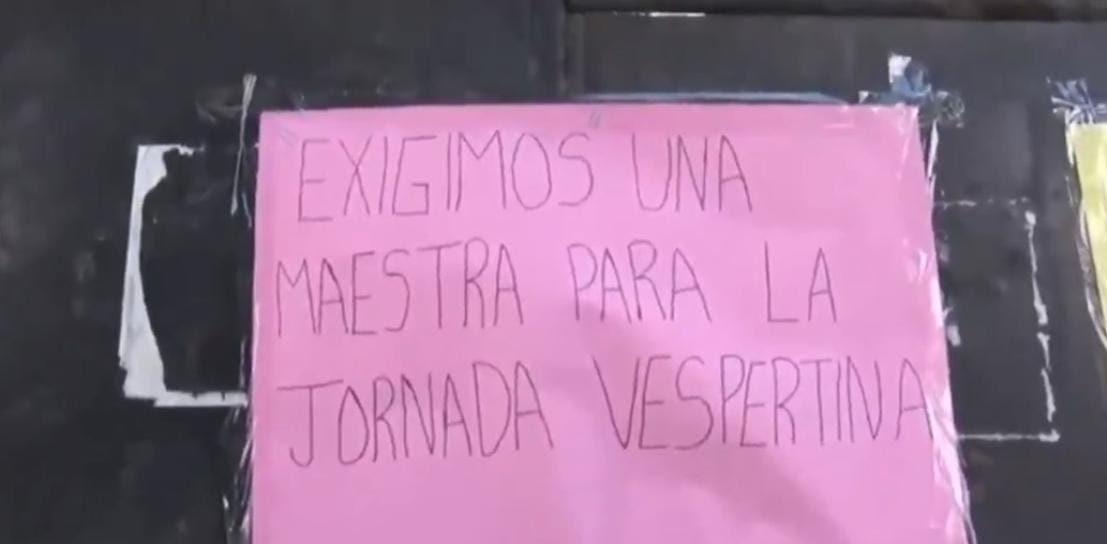 EXIGIMOS UNA
MAESTRA PARA LA
JORNADA VESPERTINA